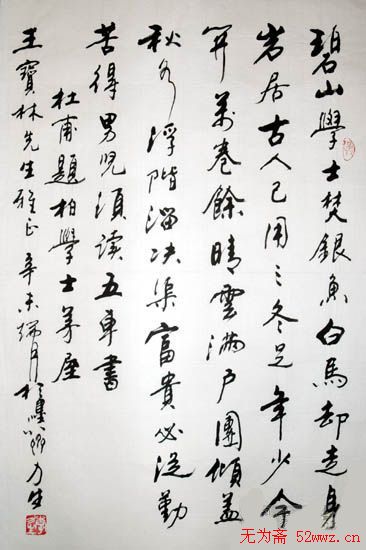 碧山學士焚銀魚白馬却走身
岩居古人已用三冬足年少今
開萬卷餘晴雲滿户團傾盖
秋水浮階溜决渠富貴必從勤
苦得男児須读五車書
杜甫題柏學士茅屋
王寶林先生雅正辛未端月於
力生
无为斋 52wwz.cn